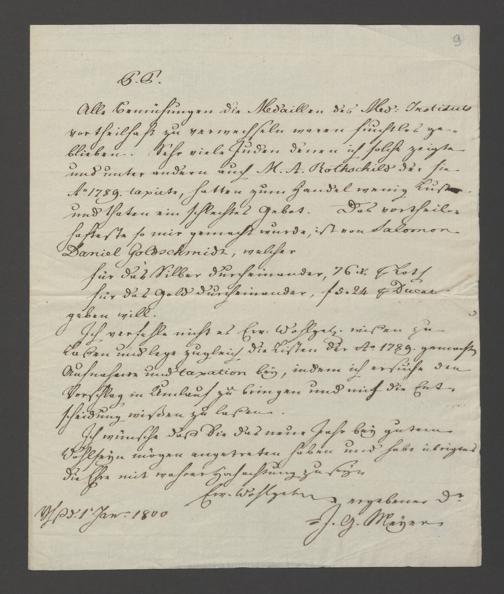 9
P. P.
Alle Bemühungen die Medaillen des Med. Instituts
vortheilhaft zu verwechseln waren fruchtlos ge-
blieben. Sehr viele Juden denen ich solche zeigte
und unter andern auch M. A. Rothschild der sie
Ao 1789. taxirte, hatten zum Handel wenig Lust
und thaten ein schlechtes Gebot. Das vortheil-
hafteste so mir gemacht wurde, ist von Salomon
Daniel Goldschmidt, welcher
für das Silber durcheinander, 76 x. Loth
für das Gold durcheinander, f 5.24 Ducat
geben will.
Ich verfehle nicht es Ew. Wohlgeb. wissen zu
lassen und lege zugleich die Listen der Ao 1789. gemachten
Aufnahme und taxation bey, indem ich ersuche den
Vorschlag in Umlauf zu bringen und mich die Ent-
scheidung wissen zu lassen.
Ich wünsche daß Sie das neue Jahr bey gutem
Wohlseyn mögen angetreten haben und habe übrigens
die Ehre mit wahrer Hochachtung zu seyn
Ew. Wohlgeb. ergebener Dr
J. G. Meyer
d. 1 Jan. 1800